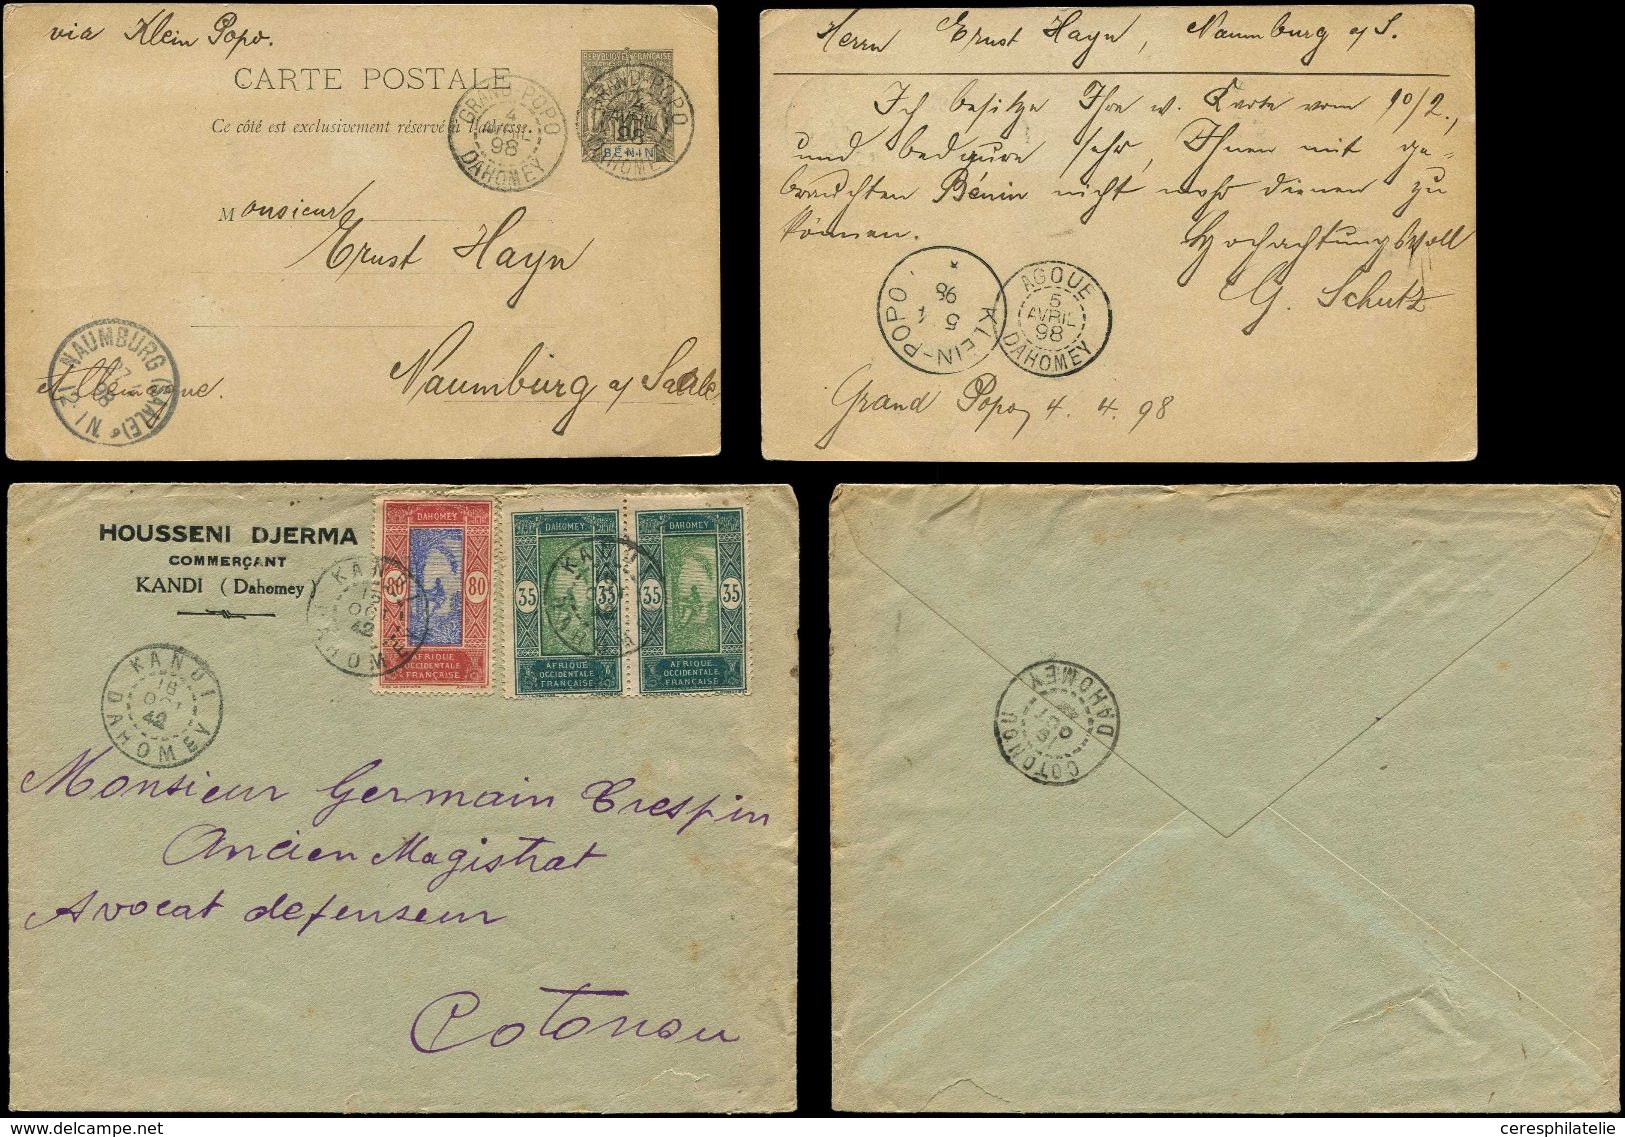 via Klein Popo.
CARTE POSTALE
Ce côté est exclusivement réservé à l'adresse.
RÉPUBLIQUE FRANÇAISE
BÉNIN
GRAND-POPO
4
AVRIL
98
DAHOMEY
GRAND-POPO
4
AVRIL
98
DAHOMEY
Monsieur
Ernst Hayn
Naumburg a/Saale
Allemagne.
NAUMBURG (SAALE)
98
Herrn Ernst Hayn, Naumburg a/S.
Ich besitze Ihre w. Karte vom 10/2.,
und bedaure sehr, Ihnen mit ge-
brauchten Bénin nicht mehr dienen zu
können.
Hochachtungsvoll
G. Schutz
KLEIN-POPO
5
4
98
AGOUE
5
AVRIL
98
DAHOMEY
Grand Popo, 4. 4. 98
HOUSSENI DJERMA
COMMERÇANT
KANDI (Dahomey)
DAHOMEY
80 80
AFRIQUE
OCCIDENTALE
FRANÇAISE
DAHOMEY
35 35
AFRIQUE
OCCIDENTALE
FRANÇAISE
DAHOMEY
35 35
AFRIQUE
OCCIDENTALE
FRANÇAISE
KANDI
16
OCT
42
DAHOMEY
Monsieur Germain Crespin
Ancien Magistrat
Avocat defenseur
Cotonou
COTONOU
OCT
DAHOMEY
www.delcampe.net
ceresphilatelie